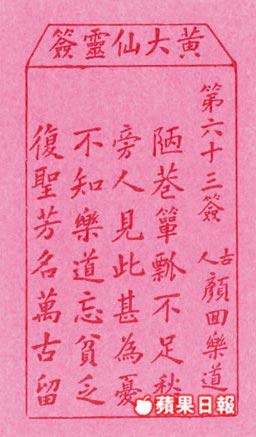 黃大仙靈簽
第六十三簽
古人 顏回樂道
陋巷簞瓢不足秋
旁人見此甚為憂
不知樂道忘貧乏
復聖芳名萬古留
蘋果日報